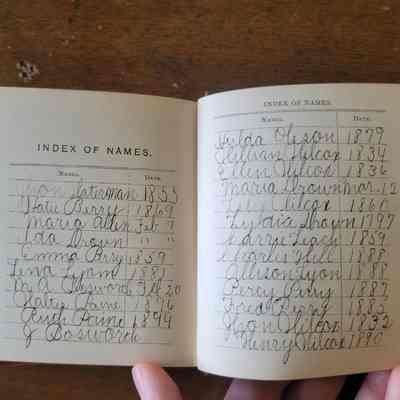 INDEX OF NAMES.
Names. Date.
Waterman 1855
Hatie Berry 1869
Maria Allen Feb 7
Ida Brown " "
Emma Berry 1859
Lena Lyon 1883
Bosworth Feb 20
Paine 1876
Ruth Paine 1844
J Bosworth
INDEX OF NAMES
Names. Date.
Hulda Oleson 1879
Wilcox 1834
Ellen Wilcox 1836
Maria Brown Mar. 12
Wilcox 1860
Lydia Brown 1797
1859
Charles Hill 1888
Allison Lyon 1888
Percy Perry 1887
Fred Perry 1885
Wilcox 1832
Henry Wilcox 1880